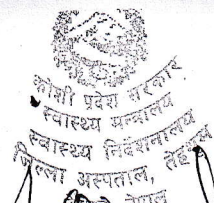 कोशी प्रदेश सरकार
स्वास्थ्य मन्त्रालय
स्वास्थ्य निर्देशनालय
जिल्ला अस्पताल,
नेपाल